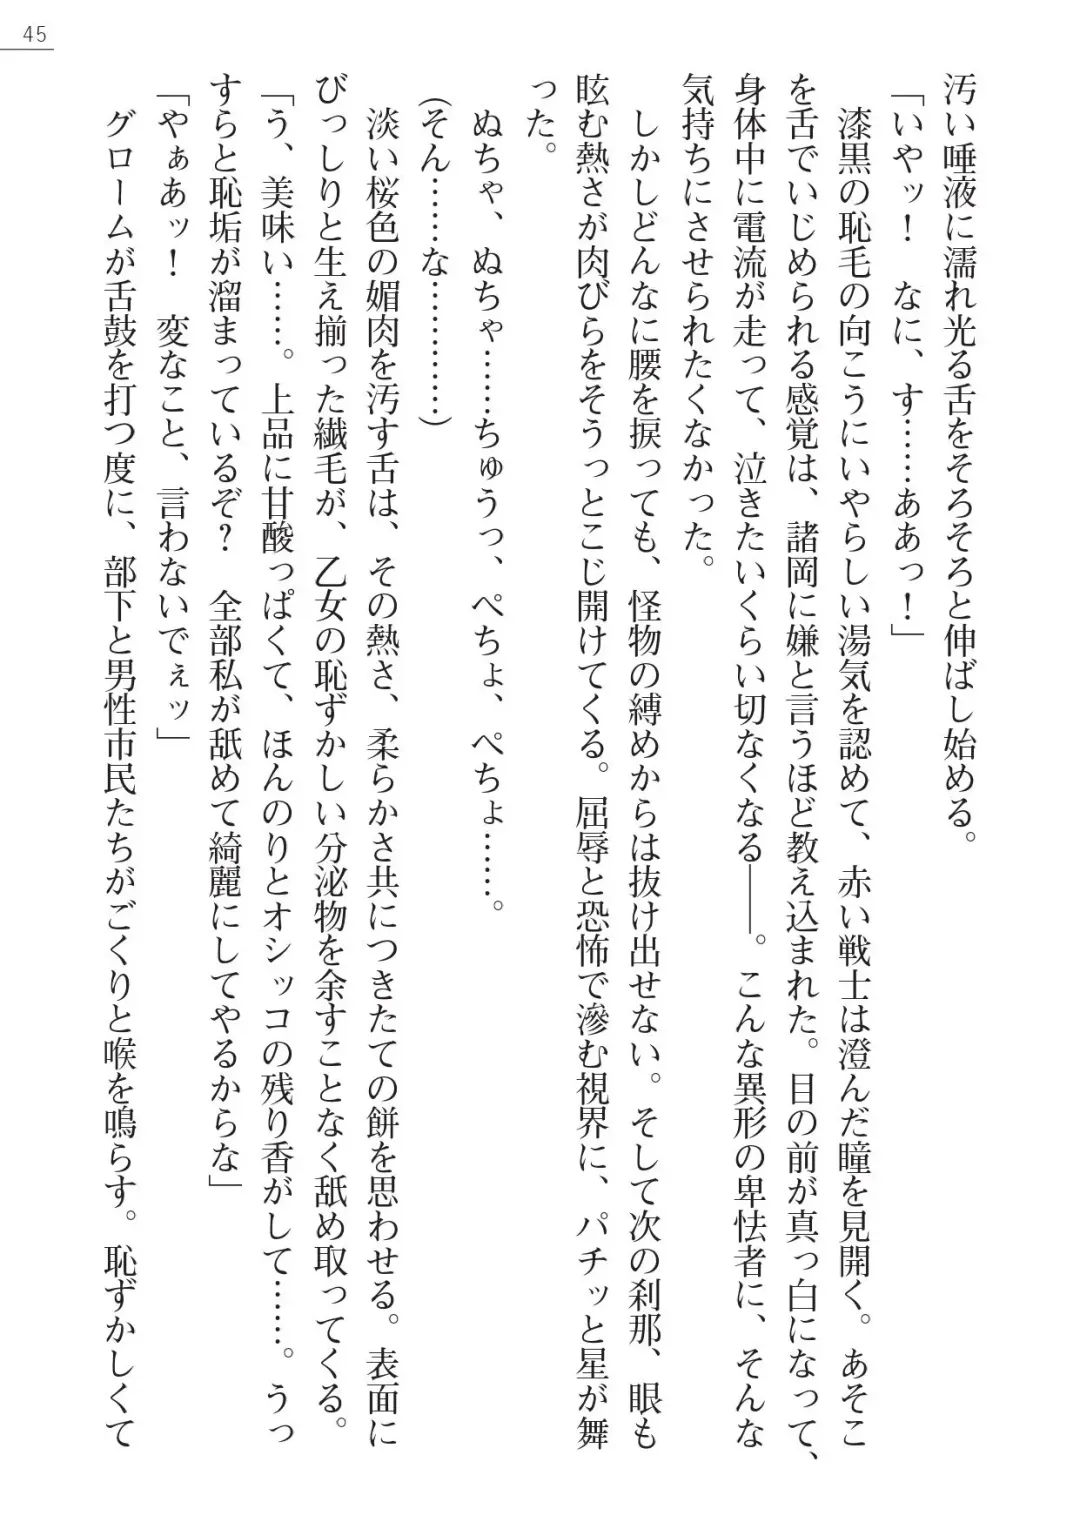 45
汚い唾液に濡れ光る舌をそろそろと伸ばし始める。
「いやッ！　なに、す……ああっ！」
漆黒の恥毛の向こうにいやらしい湯気を認めて、赤い戦士は澄んだ瞳を見開く。あそこ
を舌でいじめられる感覚は、諸岡に嫌と言うほど教え込まれた。目の前が真っ白になって、
身体中に電流が走って、泣きたいくらい切なくなる――。こんな異形の卑怯者に、そんな
気持ちにさせられたくなかった。
しかしどんなに腰を捩っても、怪物の縛めからは抜け出せない。そして次の刹那、眼も
眩む熱さが肉びらをそうっとこじ開けてくる。屈辱と恐怖で滲む視界に、パチッと星が舞
った。
ぬちゃ、ぬちゃ……ちゅうっ、ぺちょ、ぺちょ……。
（そん……な…………）
淡い桜色の媚肉を汚す舌は、その熱さ、柔らかさ共につきたての餅を思わせる。表面に
びっしりと生え揃った繊毛が、乙女の恥ずかしい分泌物を余すことなく舐め取ってくる。
「う、美味い……。上品に甘酸っぱくて、ほんのりとオシッコの残り香がして……。うっ
すらと恥垢が溜まっているぞ？　全部私が舐めて綺麗にしてやるからな」
「やぁあッ！　変なこと、言わないでぇッ」
グロームが舌鼓を打つ度に、部下と男性市民たちがごくりと喉を鳴らす。恥ずかしくて